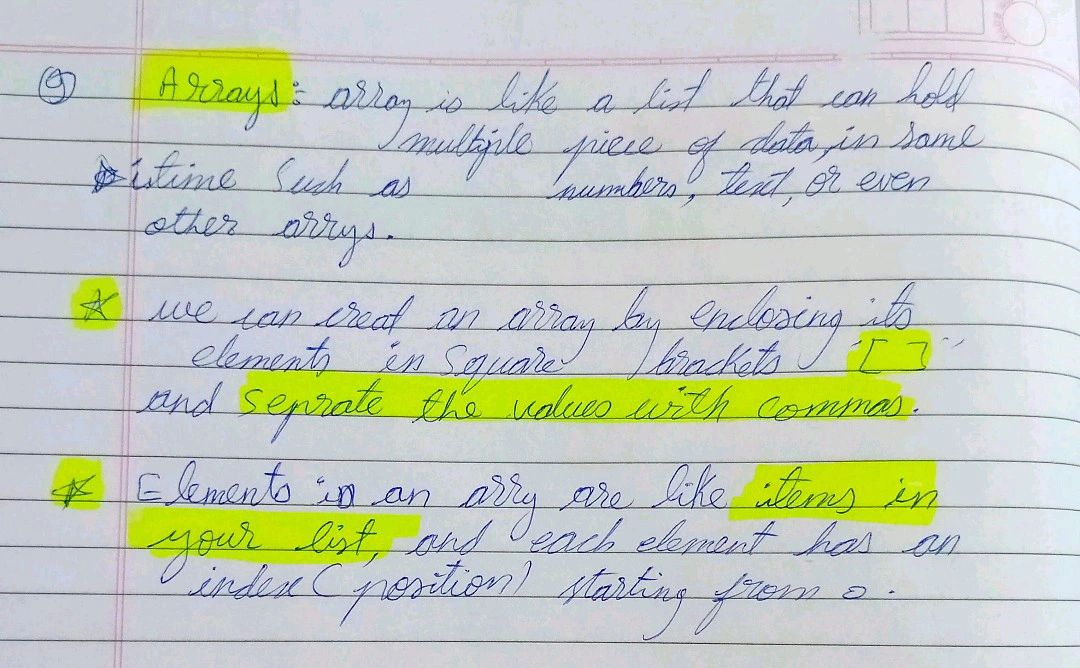 9 Arrays: array is like a list that can hold
multiple piece of data, in same
time such as numbers, text, or even
other arrys.
☆ we can creat an array by enclosing its
elements in square brackets "[ ]"
and seprate the values with commas.
☆ Elements in an arry are like items in
your list, and each element has an
index (position) starting from 0.